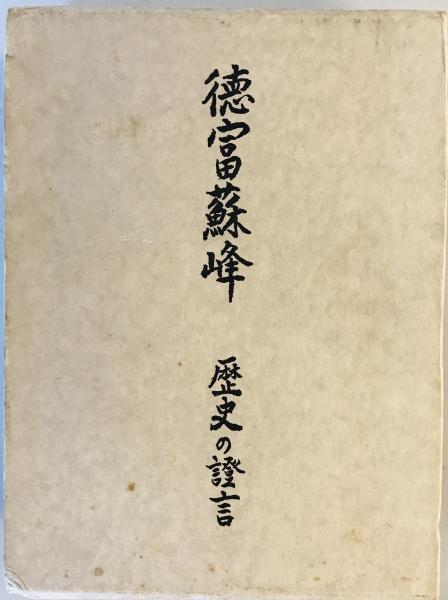 徳富蘇峰
歴史の證言